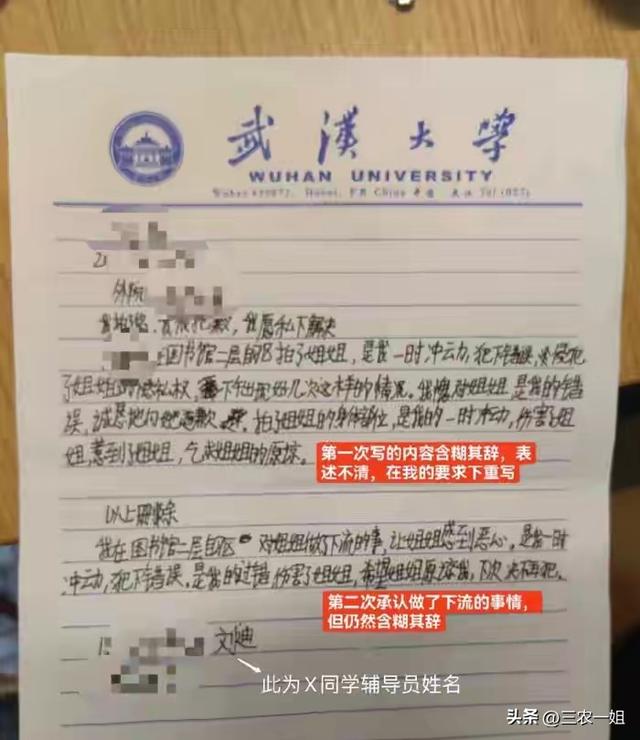 武漢大學
WUHAN UNIVERSITY
Wuhan 430072, Hubei, P.R China 中国 武汉 Tel (027)
2
外院
我愿私下解决
在图书馆二层自习区拍了姐姐,是我一时冲动,犯下错误,侵犯
了姐姐的隐私权,出现好几次这样的情况。我愧对姐姐,是我的错
误,诚恳地向她道歉,拍了姐姐的身体部位,是我的一时冲动,伤害了姐
姐,惹到了姐姐,乞求姐姐的原谅。
第一次写的内容含糊其辞,表
述不清,在我的要求下重写
以上删除
我在图书馆二层自习区 对姐姐做了下流的事,让姐姐感到恶心。是我一时
冲动,犯下错误,是我的过错伤害了姐姐,希望姐姐原谅我,下次决不再犯。
第二次承认做了下流的事情,
但仍然含糊其辞
1
此为X同学辅导员姓名
头条 @三农一姐